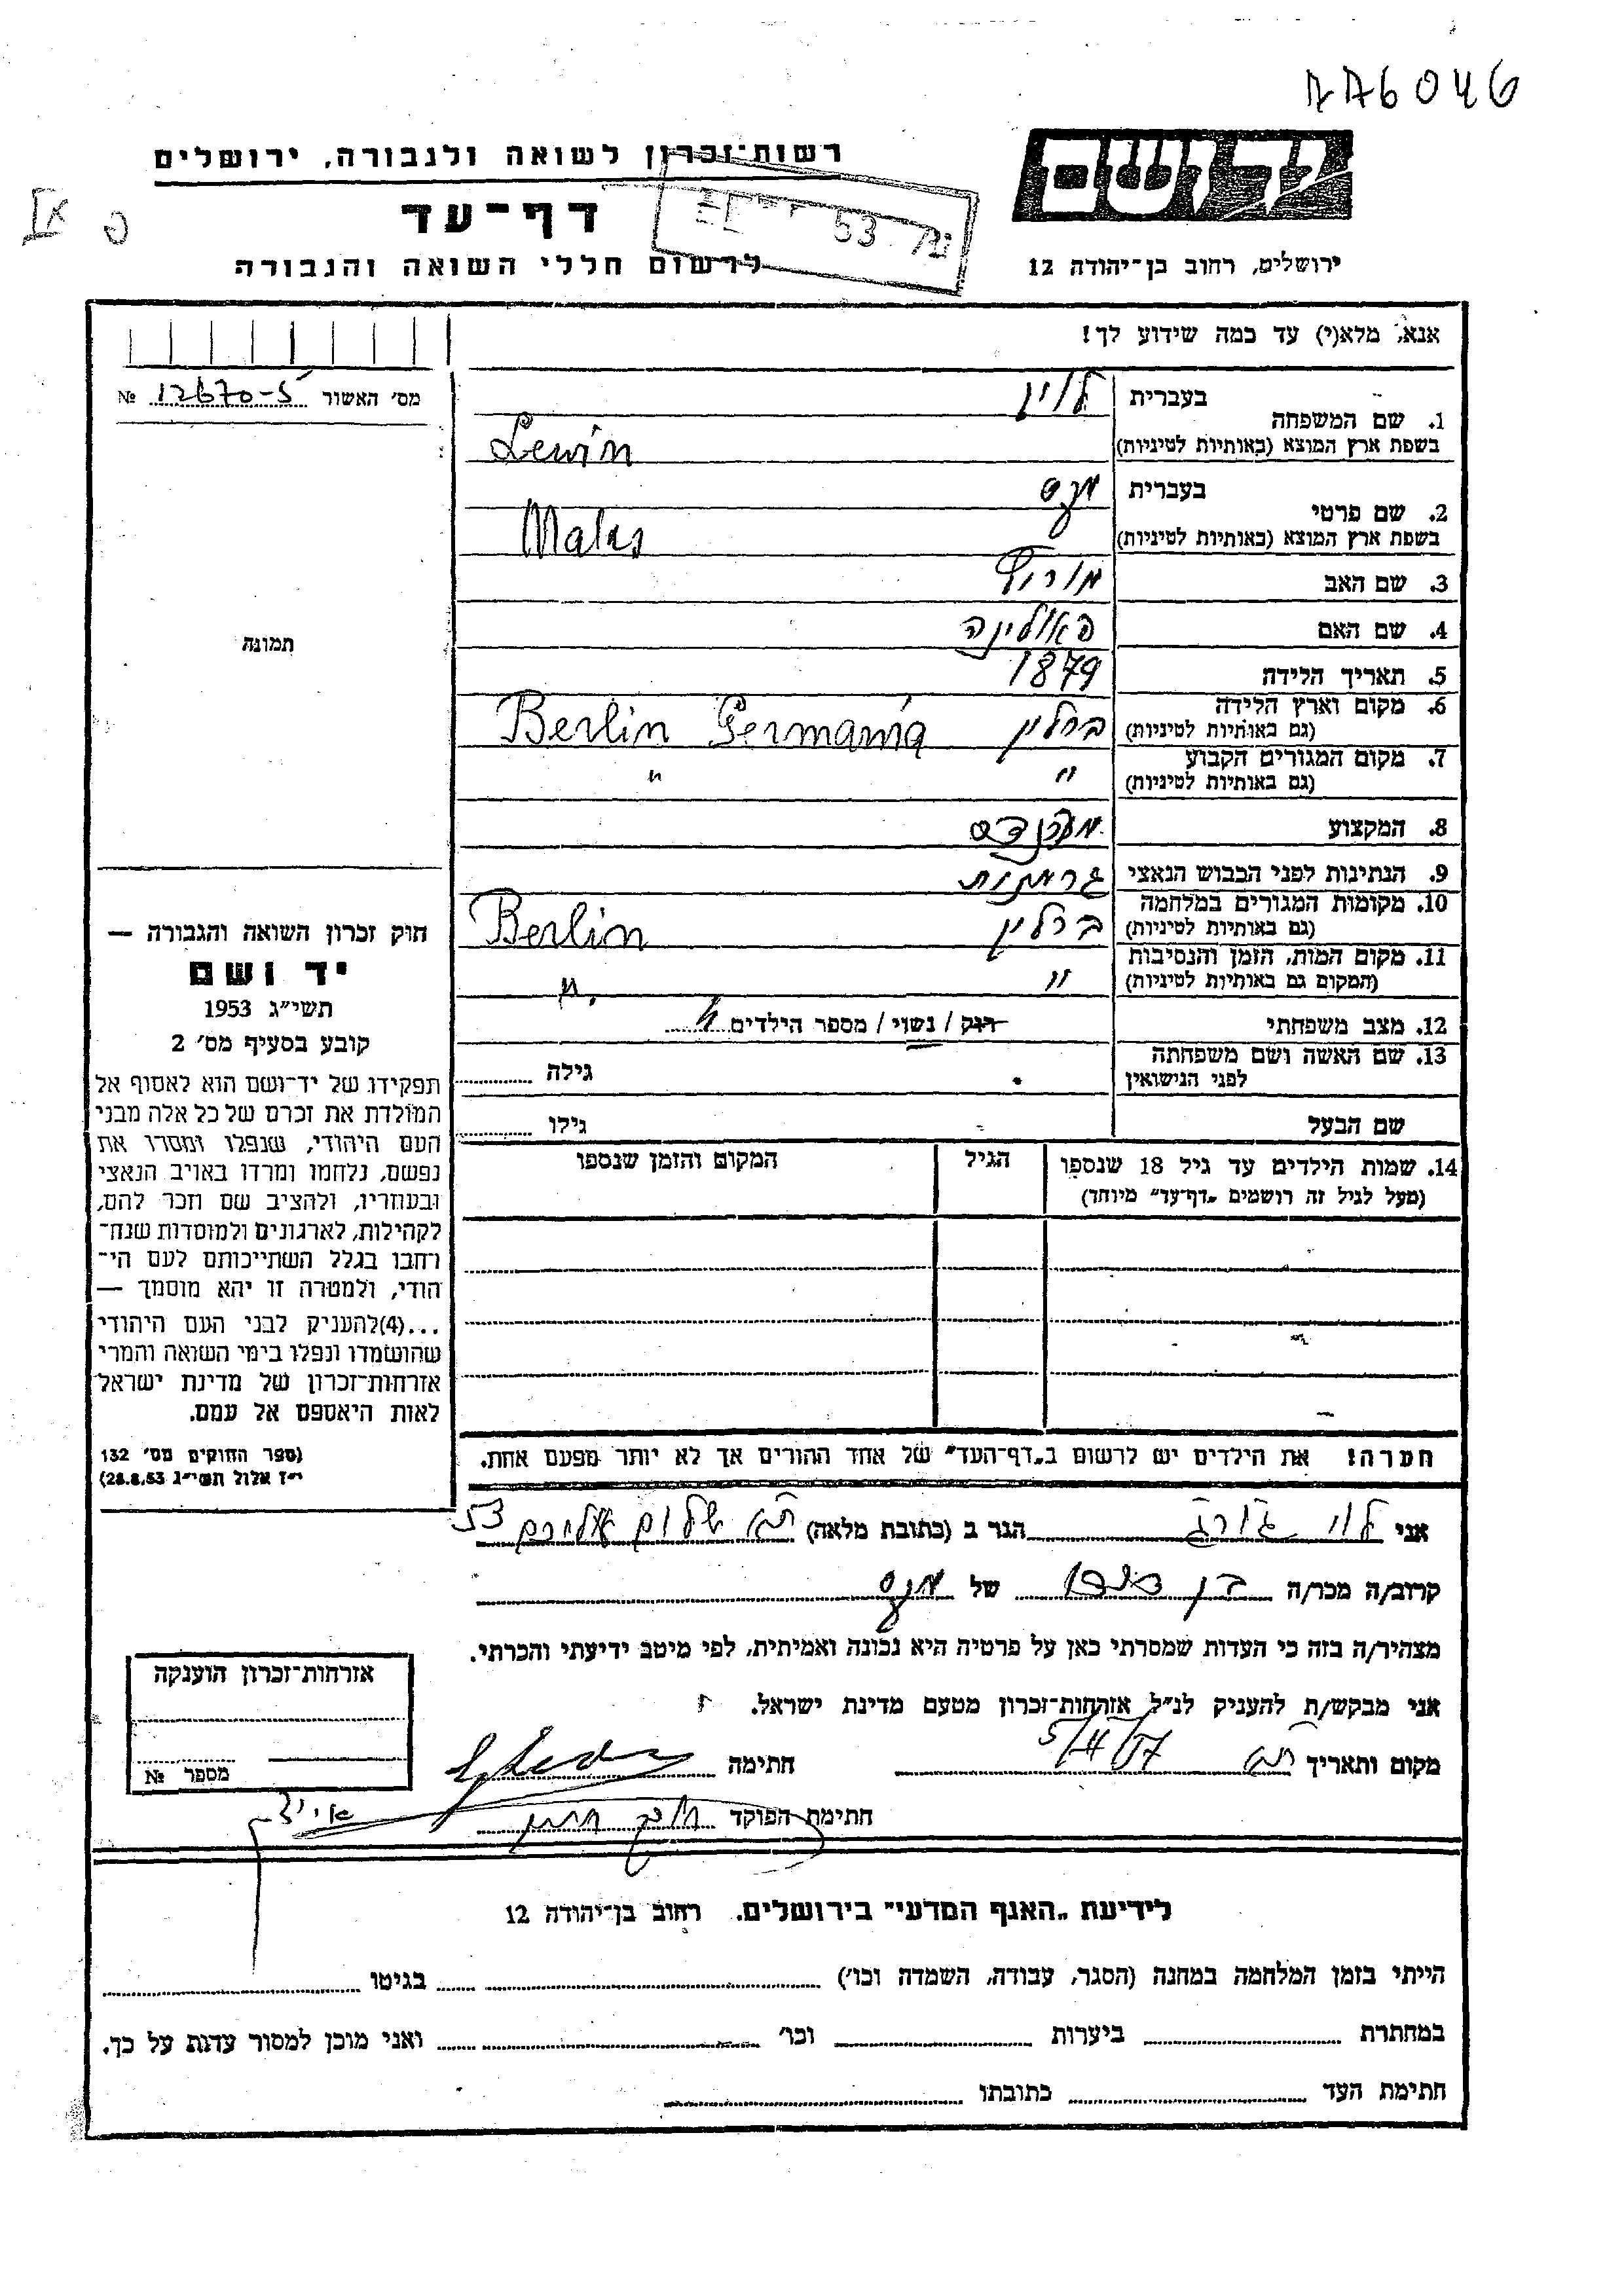 רשות־זכרון לשואה ולגבורה, ירושלים
דף־עד
לרשום חללי השואה והגבורה
יד ושם
ירושלים, רחוב בן־יהודה 12
53
אנא, מלא(י) עד כמה שידוע לך!
מס׳ האשור № 12670-5
1. שם המשפחה
בעברית לוין
בשפת ארץ המוצא (באותיות לטיניות) Lewin
2. שם פרטי
בעברית
בשפת ארץ המוצא (באותיות לטיניות)
3. שם האב מוריץ
4. שם האם פאולינה
5. תאריך הלידה 1879
6. מקום וארץ הלידה
(גם באותיות לטיניות) ברלין Berlin Germania
7. מקום המגורים הקבוע
(גם באותיות לטיניות) " "
8. המקצוע
9. הנתינות לפני הכבוש הנאצי
10. מקומות המגורים במלחמה
(גם באותיות לטיניות) ברלין Berlin
11. מקום המות, הזמן והנסיבות
(המקום גם באותיות לטיניות) " "
12. מצב משפחתי רוק / נשוי / מספר הילדים
13. שם האשה ושם משפחתה
לפני הנישואין גילה
שם הבעל גילו
14. שמות הילדים עד גיל 18 שנספו
(מעל לגיל זה רושמים „דף־עד" מיוחד)
הגיל
המקום והזמן שנספו
תמונה
חוק זכרון השואה והגבורה —
יד ושם
תשי״ג 1953
קובע בסעיף מס׳ 2
תפקידו של יד־ושם הוא לאסוף אל
המולדת את זכרם של כל אלה מבני
העם היהודי, שנפלו ומסרו את
נפשם, נלחמו ומרדו באויב הנאצי
ובעוזריו, ולהציב שם וזכר להם,
לקהילות, לארגונים ולמוסדות שנח־
רחבו בגלל השתייכותם לעם הי־
הודי, ולמטרה זו יהא מוסמך —
...(4)להעניק לבני העם היהודי
שהושמדו ונפלו בימי השואה והמרי
אזרחות־זכרון של מדינת ישראל
לאות היאספם אל עמם.
(ספר החוקים מס׳ 132
י״ז אלול תשי״ג 28.8.53)
הערה! את הילדים יש לרשום ב„דף־העד" של אחד ההורים אך לא יותר מפעם אחת.
אני לוי גורג הגר ב (כתובת מלאה) ת״א שלום אליכם 53
קרוב/ה מכר/ה בן של
מצהיר/ה בזה כי העדות שמסרתי כאן על פרטיה היא נכונה ואמיתית, לפי מיטב ידיעתי והכרתי.
אני מבקש/ת להעניק לנ״ל אזרחות־זכרון מטעם מדינת ישראל.
מקום ותאריך ת״א 5/II/57 חתימה
חתימת הפוקד
אזרחות־זכרון הוענקה
מספר №
לידיעת „האגף המדעי" בירושלים. רחוב בן־יהודה 12
הייתי בזמן המלחמה במחנה (הסגר, עבודה, השמדה וכו׳) בגיטו
במחתרת ביערות וכו׳ ואני מוכן למסור עדות על כך.
חתימת העד כתובתו